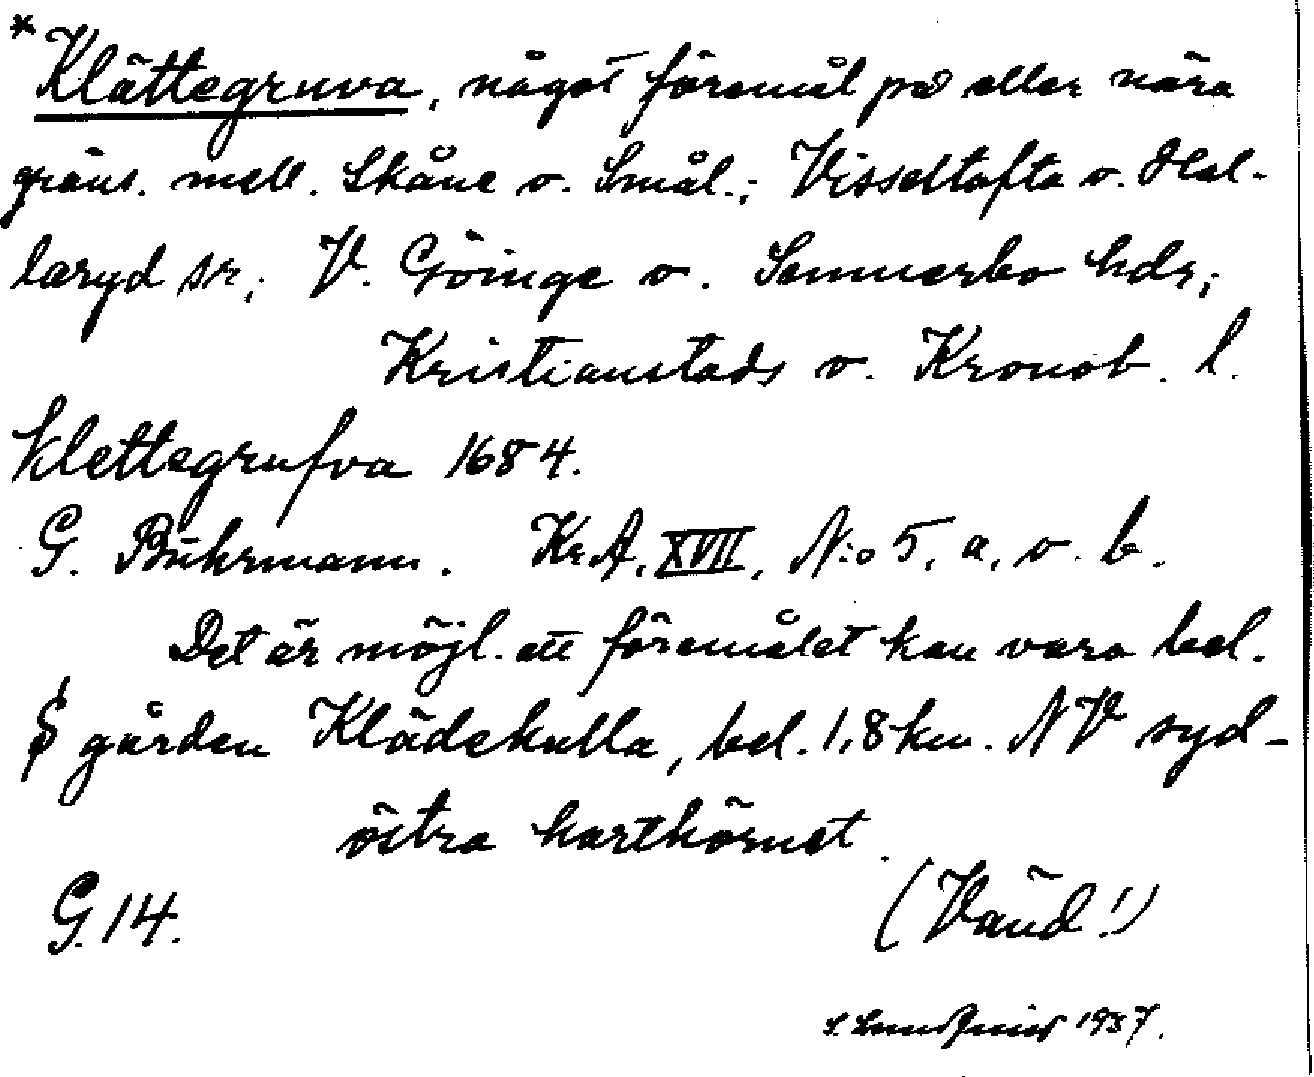 *Klättegruva, något föremål på eller nära
gräns. mell. Skåne o. Smål.; Visseltofta o. Hal-
laryd sn; V. Göinge o. Sunnerbo hds;
Kristianstads o. Kronob. l.
klettegrufva 1684.
G. Buhrmann. Kr.A. XVII, N:o 5, a, o. b.
Det är möjl. att föremålet kan vara bel.
S gården Klädekulla, bel. 1,8 km. NV syd-
östra karthörnet.
G.14.
(Vänd!)
1937.